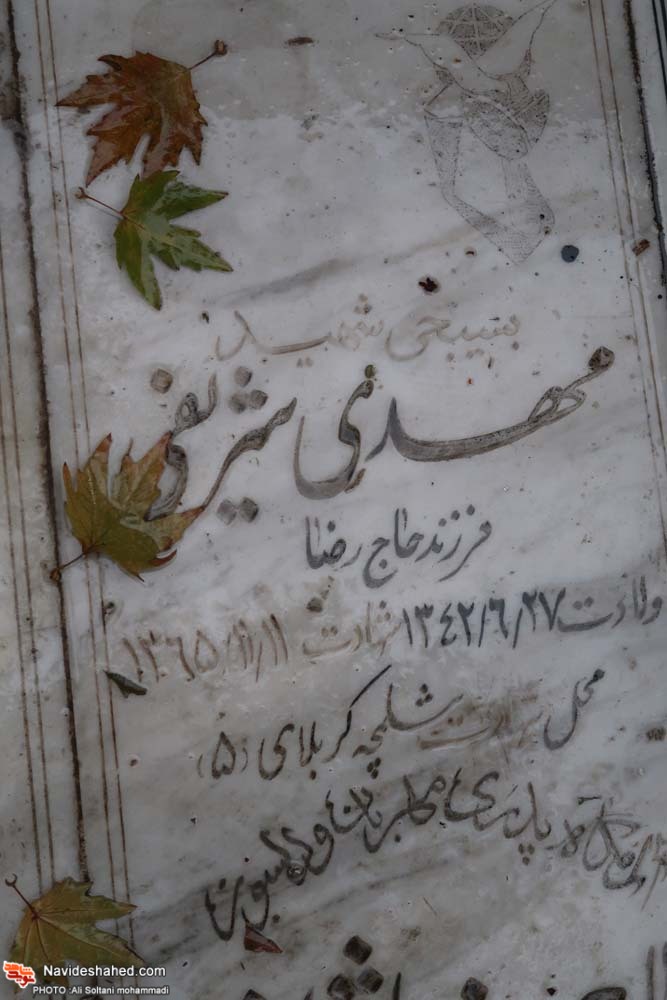 بسیجی شهید
مهدی شریفی
فرزند حاج رضا
ولادت ۱۳۴۲/۶/۲۷ شهادت ۱۳۶۵/۱۱/۱۱
محل شهادت شلمچه کربلای (۵)
پدری مهربان و دلسوز
Navideshahed.com
PHOTO: Ali Soltani mohammadi